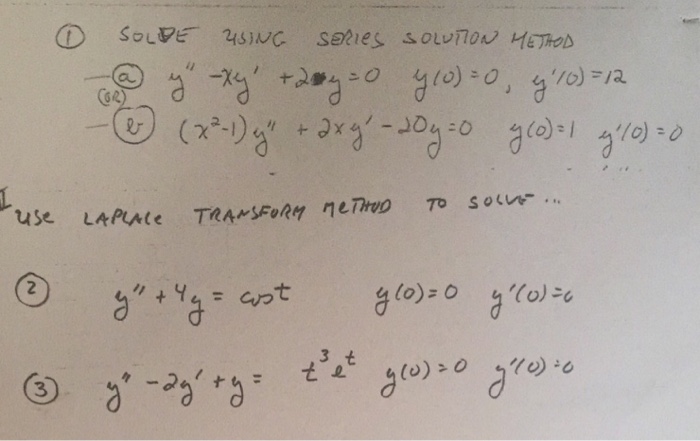 ① SOLVE USING SERIES SOLUTION METHOD
ⓐ y" - xy' + 2y = 0 y(0) = 0, y'(0) = 12
(OR)
ⓑ (x²-1)y" + 2xy' - 20y = 0 y(0) = 1 y'(0) = 0
USE LAPLACE TRANSFORM METHOD TO SOLVE ...
② y" + 4y = cos t y(0) = 0 y'(0) = 0
③ y" - 2y' + y = t³e^t y(0) = 0 y'(0) = 0